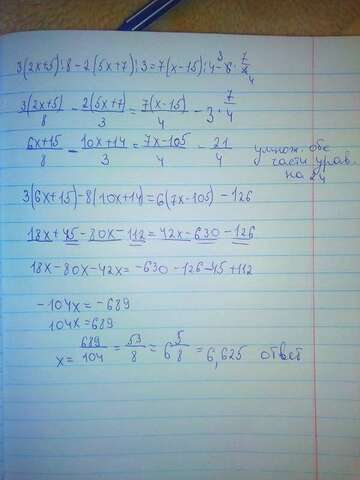 3(2x+5):8-2(5x+7):3=7(x-15):4-3·7/4
3(2x+5)/8 - 2(5x+7)/3 = 7(x-15)/4 - 3·7/4
6x+15/8 - 10x+14/3 = 7x-105/4 - 21/4 умнож. обе
части урав.
на 24
3(6x+15)-8(10x+14)=6(7x-105)-126
18x+45-80x-112=42x-630-126
18x-80x-42x=-630-126-45+112
-104x=-689
104x=689
x=689/104=53/8=6 5/8=6,625 ответ